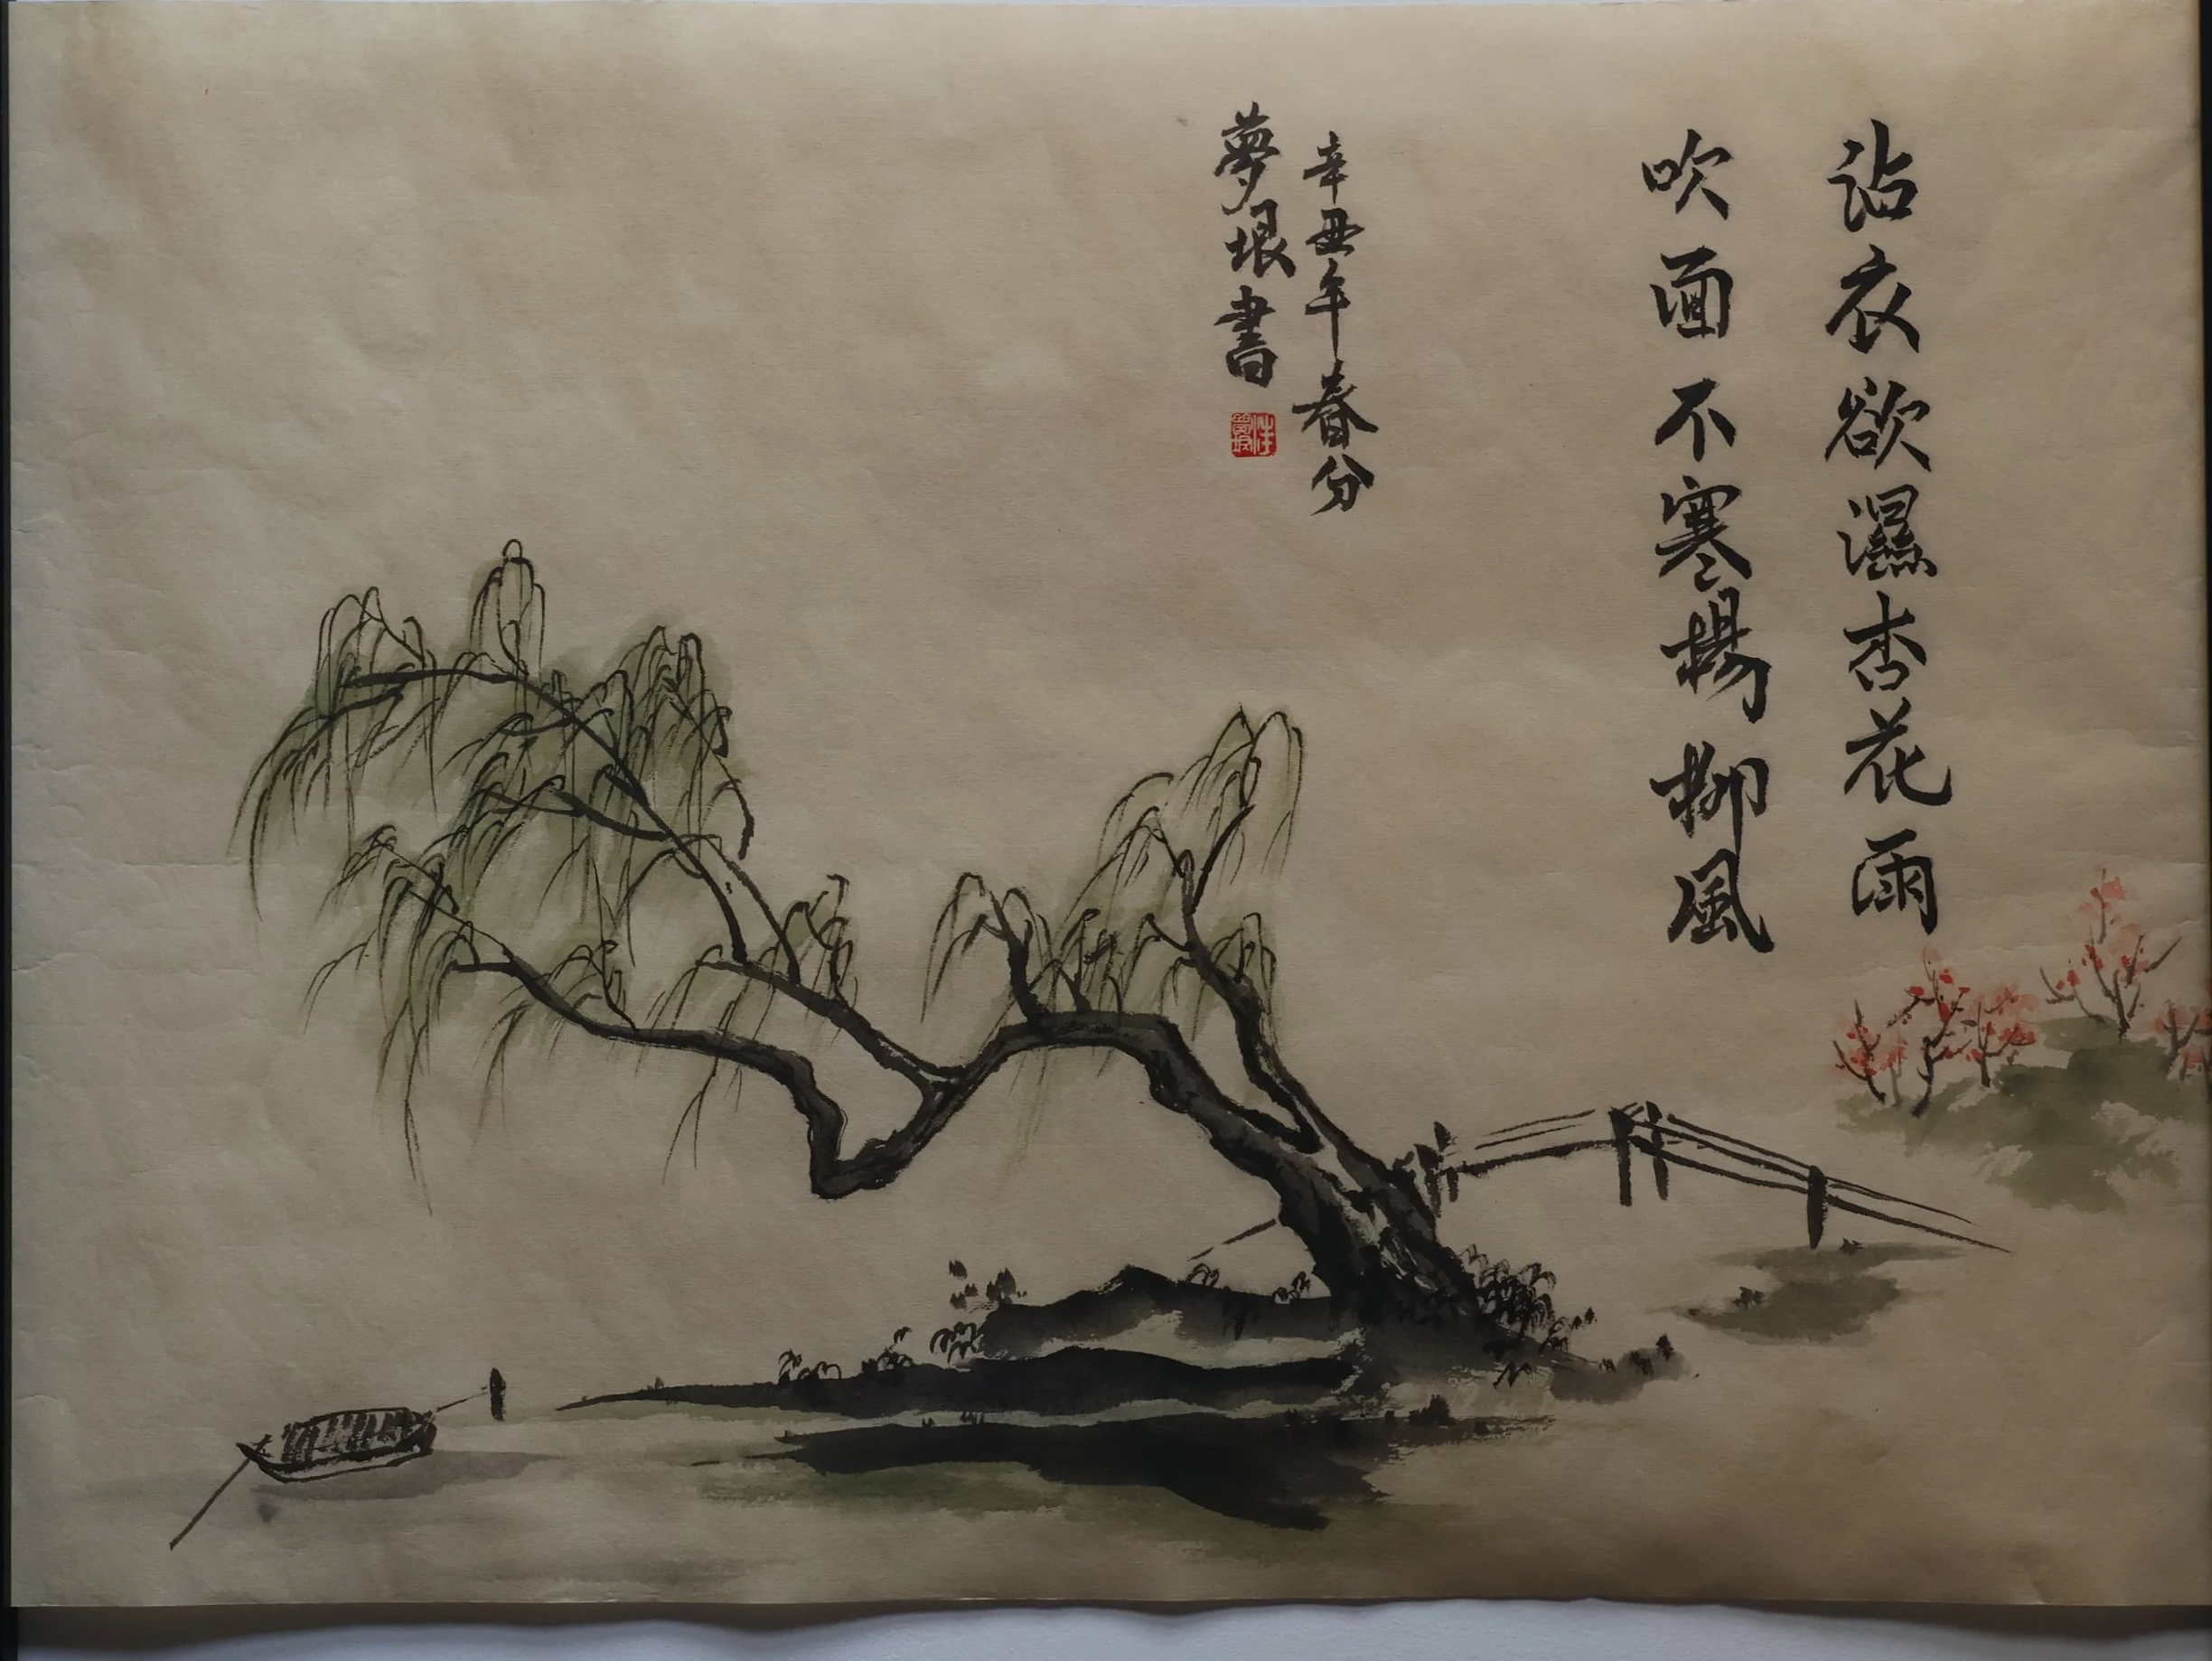 沾衣欲濕杏花雨
吹面不寒楊柳風
辛丑年春分
夢垠書